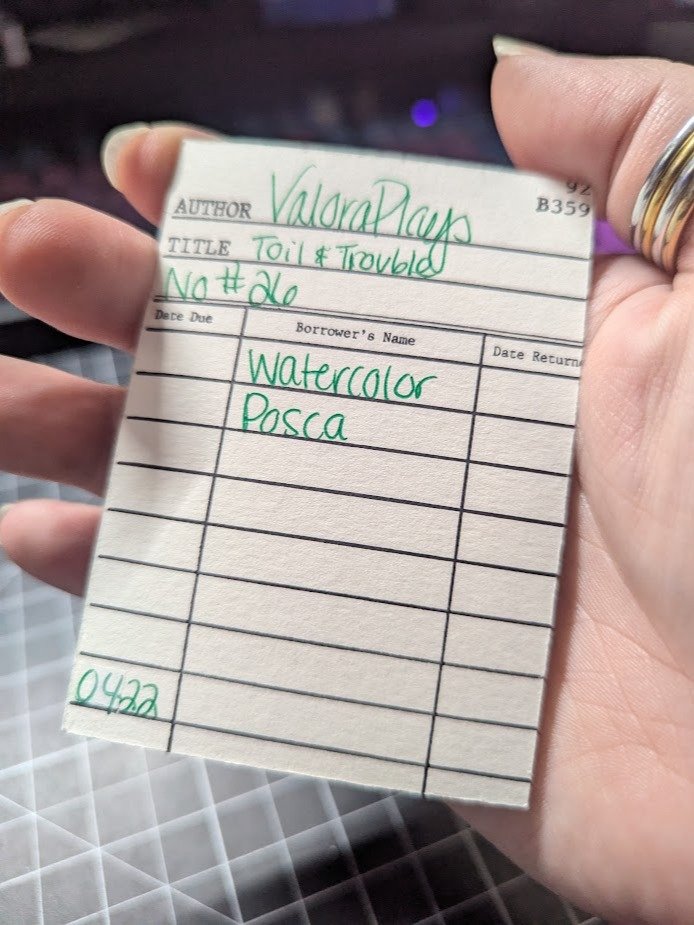 92
B359
AUTHOR ValoraPlays
TITLE Toil & Trouble
No #26
Date Due Borrower's Name Date Return
Watercolor
Posca
0422